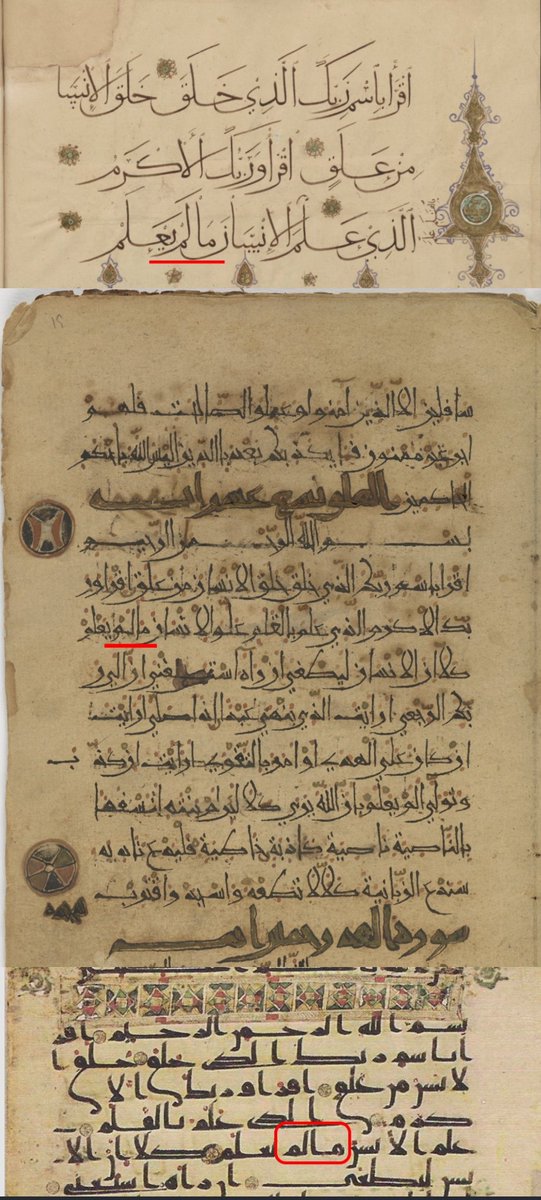 اقرأ باسم ربك الذي خلق خلق الإنسان
من علق اقرأ وربك الأكرم
الذي علم الإنسان ما لم يعلم
بالقلم علم
١٩
سافلين إلا الذين آمنوا وعملوا الصالحات فلهم
اجر غير ممنون فما يكذبك بعد بالدين اليس الله باحكم
الحاكمين
بسم الله الرحمن الرحيم
اقرا باسم ربك الذي خلق خلق الانسان من علق اقرا ور
بك الاكرم الذي علم بالقلم علم الانسان ما لم يعلم
كلا ان الانسان ليطغي ان رآه استغني ان الي ر
بك الرجعي ارايت الذي ينهي عبدا اذا صلي ارايت
ان كان علي الهدي او امر بالتقوي ارايت ان كذب
وتولي الم يعلم بان الله يري كلا لئن لم ينته لنسفعا
بالناصية ناصية كاذبة خاطية فليدع ناديه
سندع الزبانية كلا لا تطعه واسجد واقترب
سورة القدر خمس ايات
بسم الله الرحمن الرحيم اقر
ا باسم ربك الذي خلق خلق ا
لانسن من علق اقرا وربك الا
كرم الذي علم بالقلم
علم الانسن ما لم يعلم كلا ان الا
نسن ليطغى ان راه استغنى